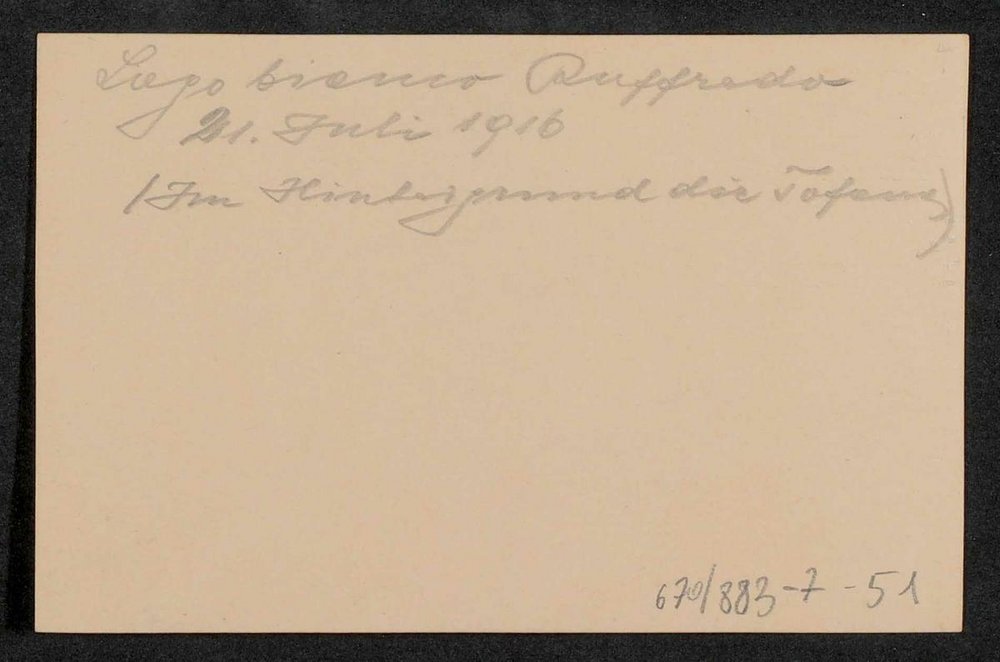 Lago bianco Ruffredo
21. Juli 1916
(Im Hintergrund die Tofana)
670/883-7-51